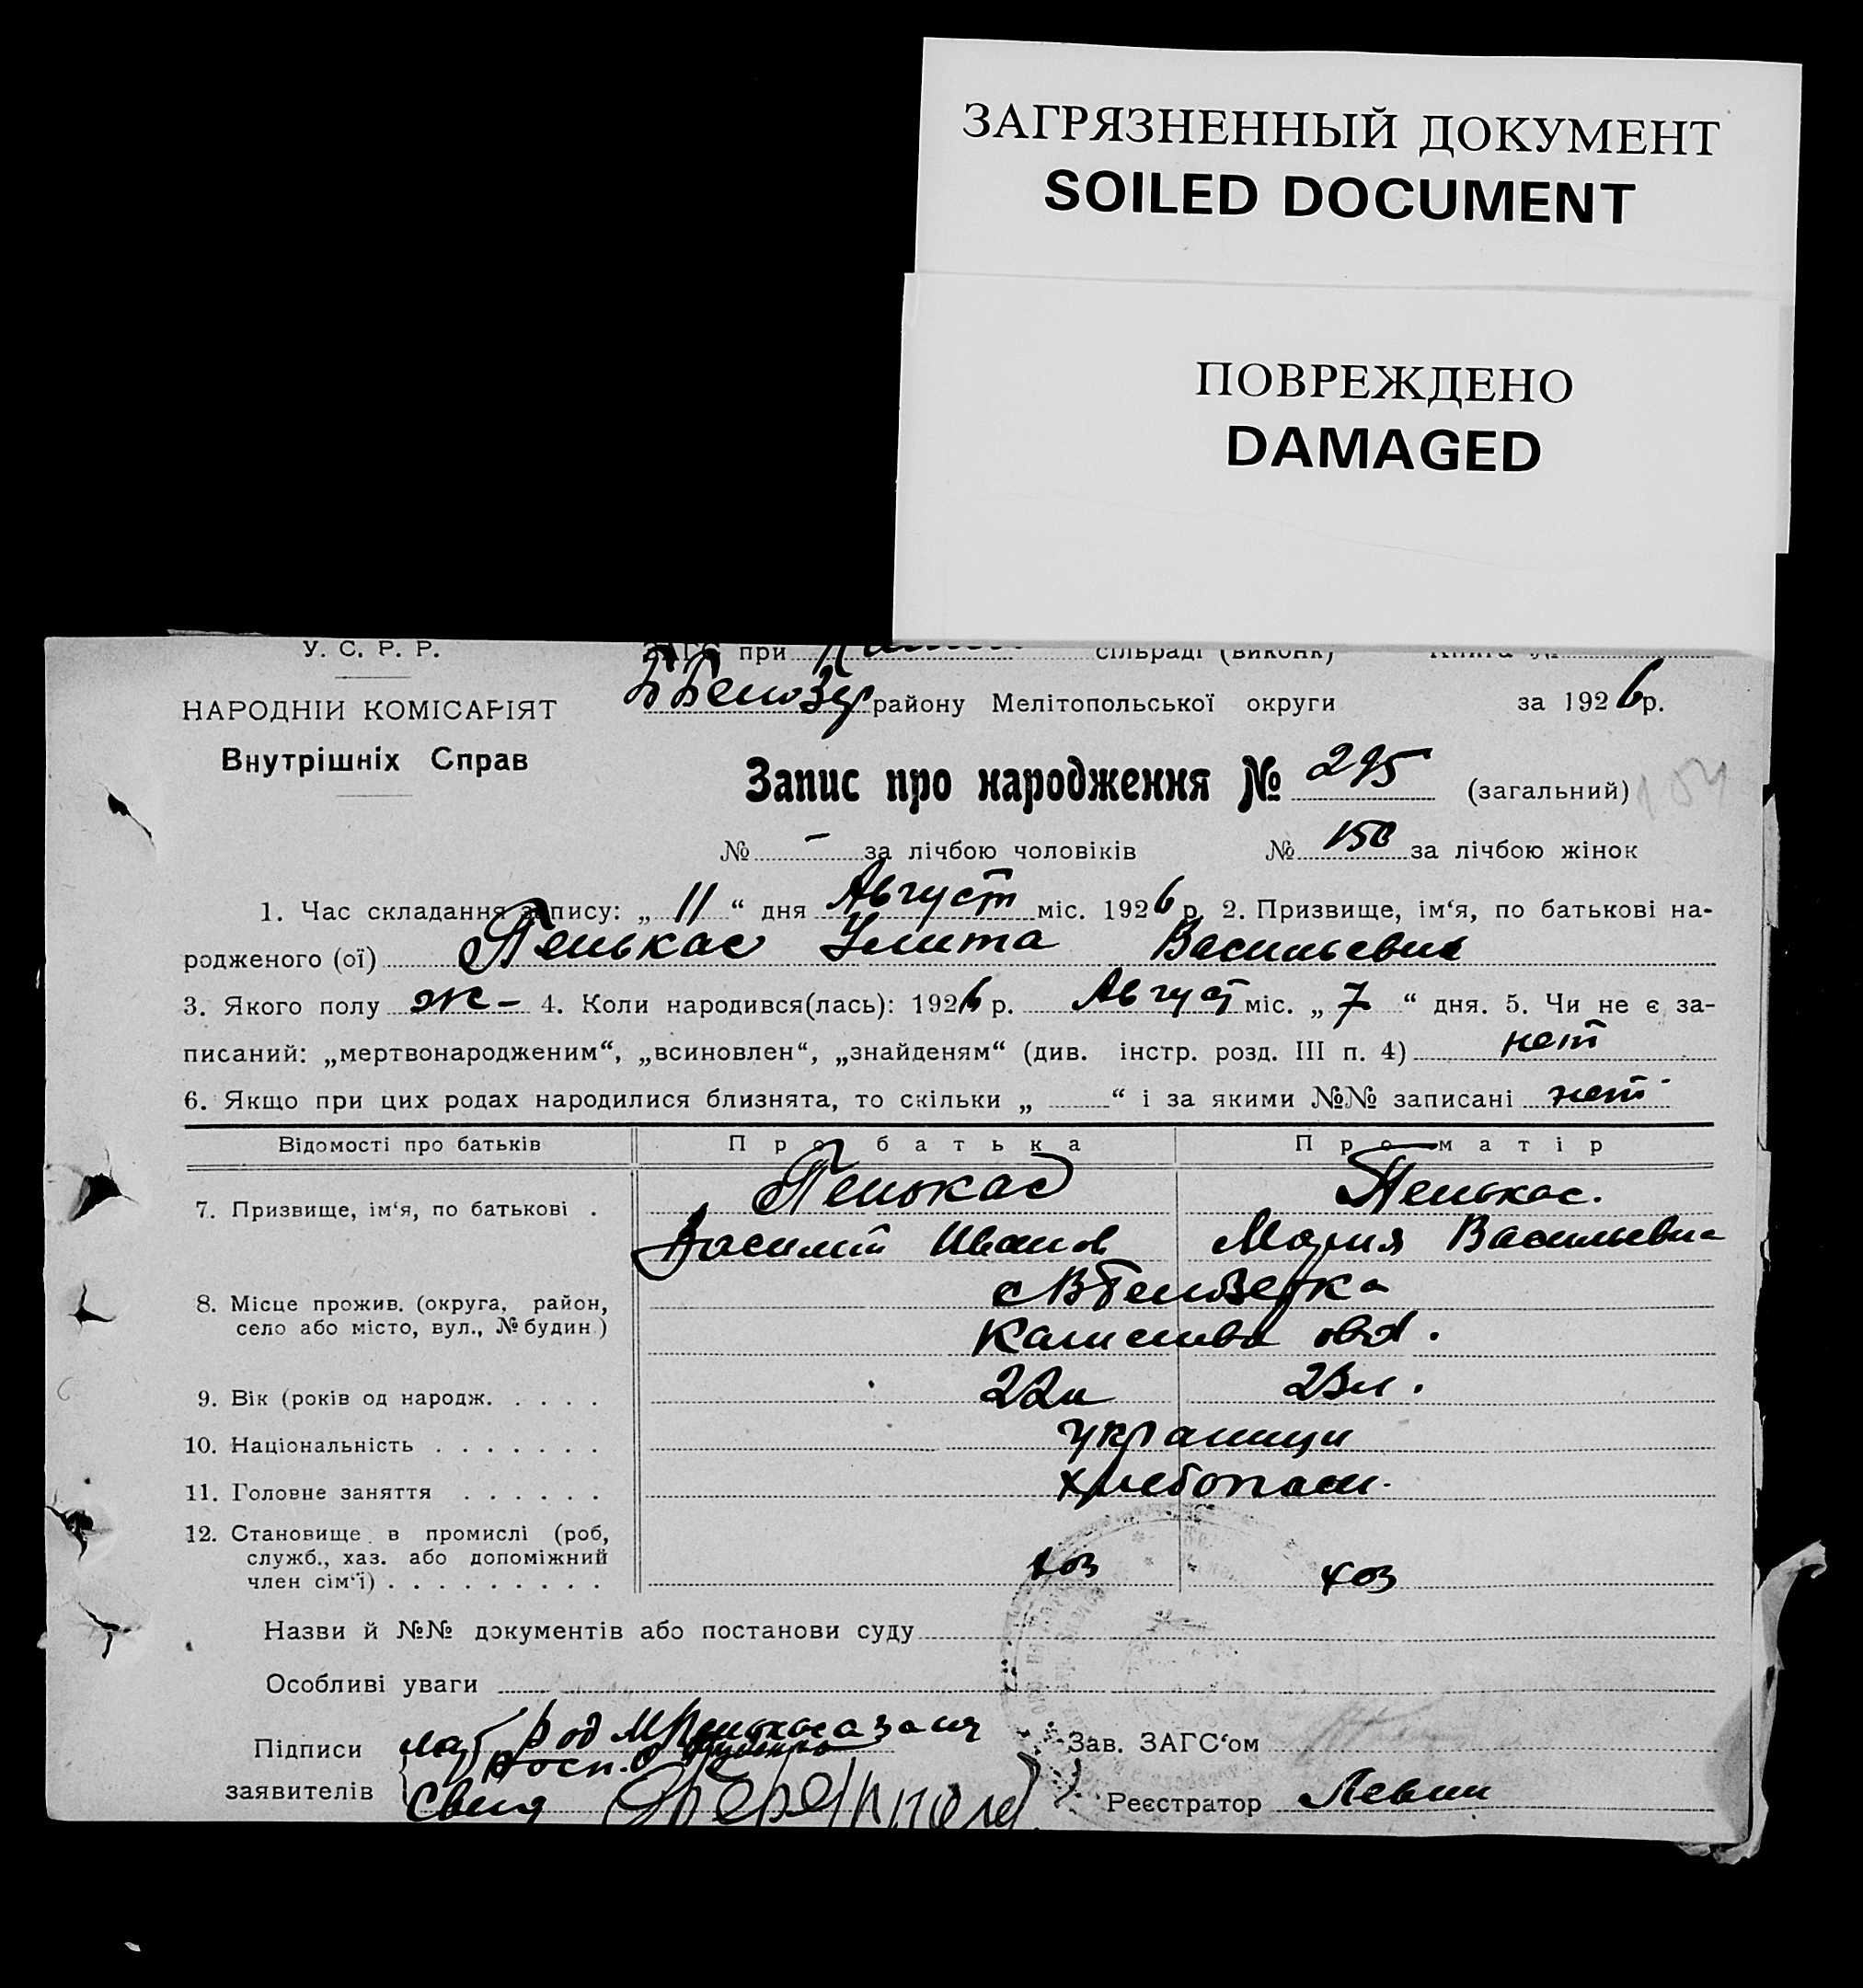 ЗАГРЯЗНЕННЫЙ ДОКУМЕНТ
SOILED DOCUMENT
ПОВРЕЖДЕНО
DAMAGED
У. С. Р. Р.
ЗАГС при сільраді (виконк) Книга №
району Мелітопольської округи за 1926р.
НАРОДНІЙ КОМІСАРІЯТ
Внутрішніх Справ
Запис про народження № 295 (загальний)
№ - за лічбою чоловіків № за лічбою жінок
1. Час складання запису: „ 11 “ дня Август міс. 1926 р. 2. Призвище, ім‘я, по батькові на-
родженого (ої) Пенькас Улита Васильевна
3. Якого полу ж - 4. Коли народився(лась): 1926 р. Август міс. „ 7 “ дня. 5. Чи не є за-
писаний: „мертвонародженим“, „всиновлен“, „знайденям“ (див. інстр. розд. III п. 4) нет
6. Якщо при цих родах народилися близнята, то скільки „ “ і за якими №№ записані нет
Відомості про батьків Про батька Про матір
7. Призвище, ім‘я, по батькові . Пенькас Пенькас.
Василий Иванов Мария Васильевна
8. Місце прожив. (округа, район, с В Белозерка
село або місто, вул., № будин.)
9. Вік (років од народж. . . . . 22л 23л.
10. Національність . . . . . . . украинци
11. Головне заняття . . . . . . хлебопаш.
12. Становище в промислі (роб,
служб., хаз. або допоміжний хоз хоз
член сім‘ї) . . . . . . . . .
Назви й №№ документів або постанови суду
Особливі уваги
Підписи Зав. ЗАГС‘ом
заявителів Реєстратор Левин